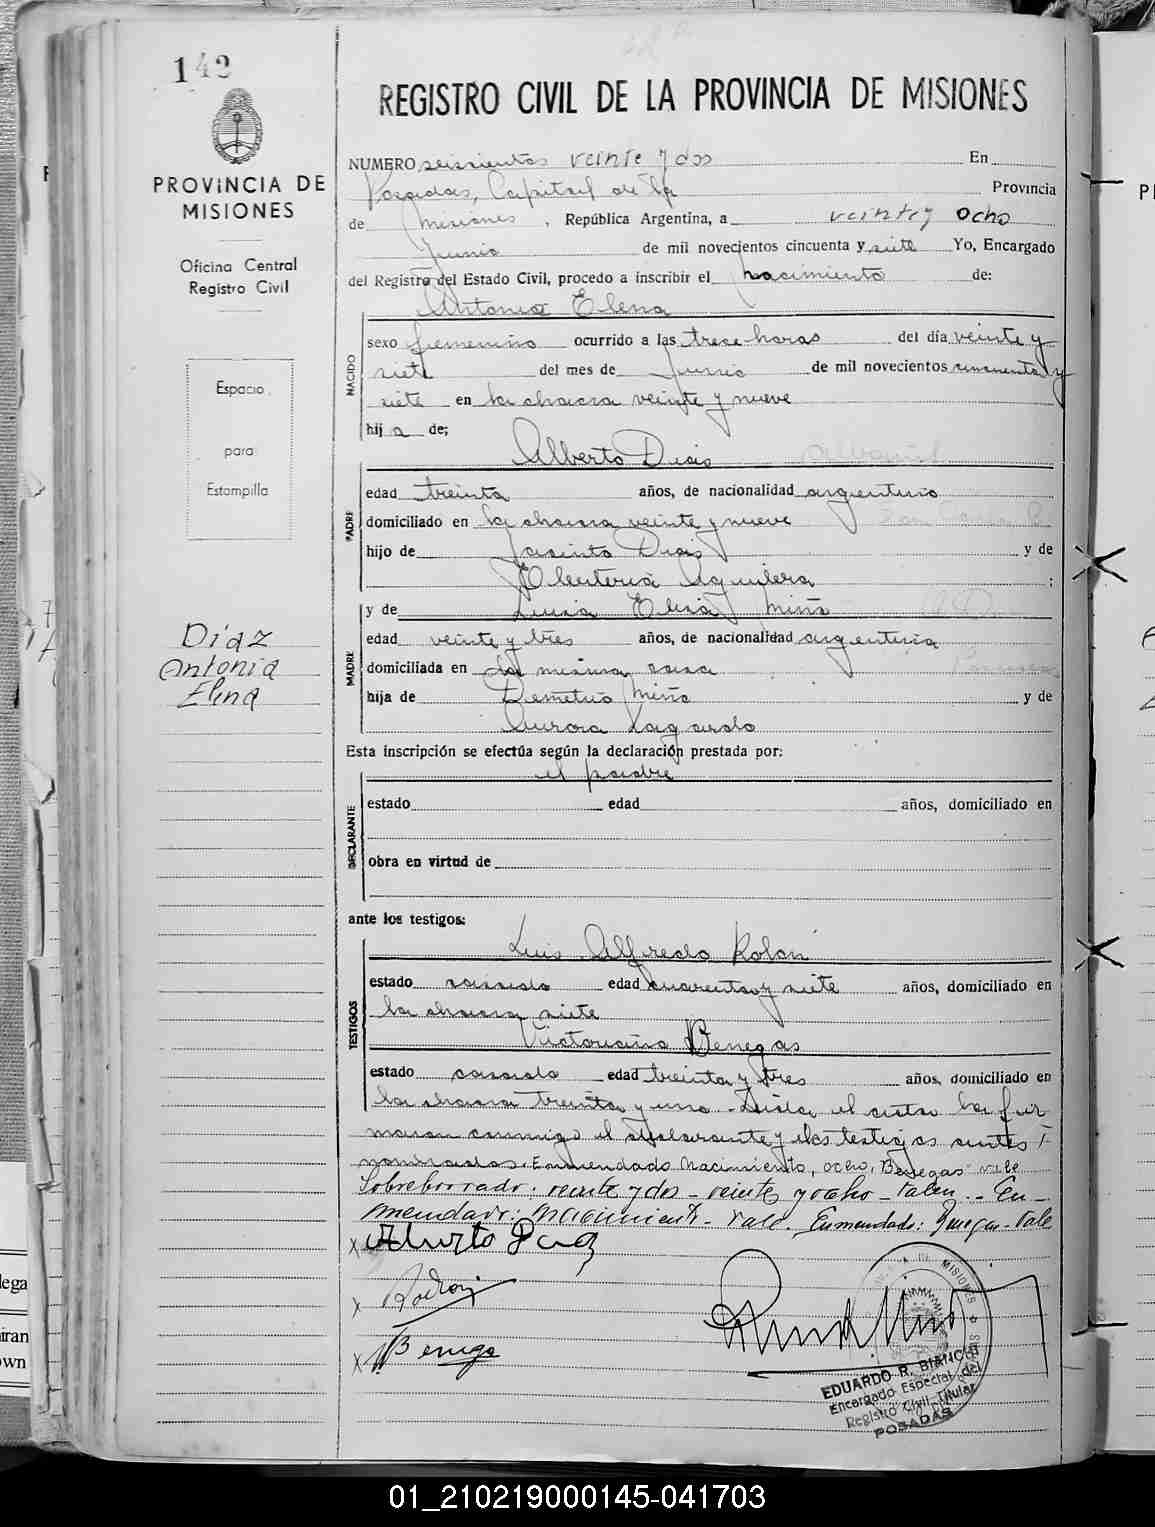 142
PROVINCIA DE
MISIONES
Oficina Central
Registro Civil
Espacio
para
Estampilla
Díaz
Antonia
Elena
REGISTRO CIVIL DE LA PROVINCIA DE MISIONES
NUMERO seiscientos veinte y dos En
Posadas, Capital de la Provincia
de Misiones, República Argentina, a veinte y ocho
Junio de mil novecientos cincuenta y siete Yo, Encargado
del Registro del Estado Civil, procedo a inscribir el nacimiento de:
Antonia Elena
NACIDO
sexo femenino ocurrido a las trece horas del día veinte y
siete del mes de Junio de mil novecientos cincuenta y
siete en la chacra veinte y nueve
hija de;
Alberto Diaz
PADRE
edad treinta años, de nacionalidad argentino
domiciliado en la chacra veinte y nueve
hijo de Jacinto Diaz y de
Eleuteria Aguilera ;
MADRE
y de Luisa Elsa Miño
edad veinte y tres años, de nacionalidad argentina
domiciliada en la misma casa
hija de Demetrio Miño y de
Aurora Lagardo
Esta inscripción se efectúa según la declaración prestada por;
el padre
DECLARANTE
estado edad años, domiciliado en
obra en virtud de
ante los testigos:
TESTIGOS
Luis Alfredo Rolon
estado casado edad cuarenta y siete años, domiciliado en
la chacra siete
Victoriano Benegas
estado casado edad treinta y tres años, domiciliado en
la chacra treinta y uno. Leida el acta la fir
maron conmigo el declarante y los testigos antes
nombrados. Enmendado Nacimiento, ocho, Benegas vale
Sobreborrado: veinte y dos - veinte y ocho - valen. - En-
mendado: Nacimiento - Vale. Enmendado: Benegas - Vale
x Alberto Diaz
x Rolon
x Benega
EDUARDO R. BIANCHI
Encargado Especial del
Registro Civil Titular
POSADAS
01_210219000145-041703